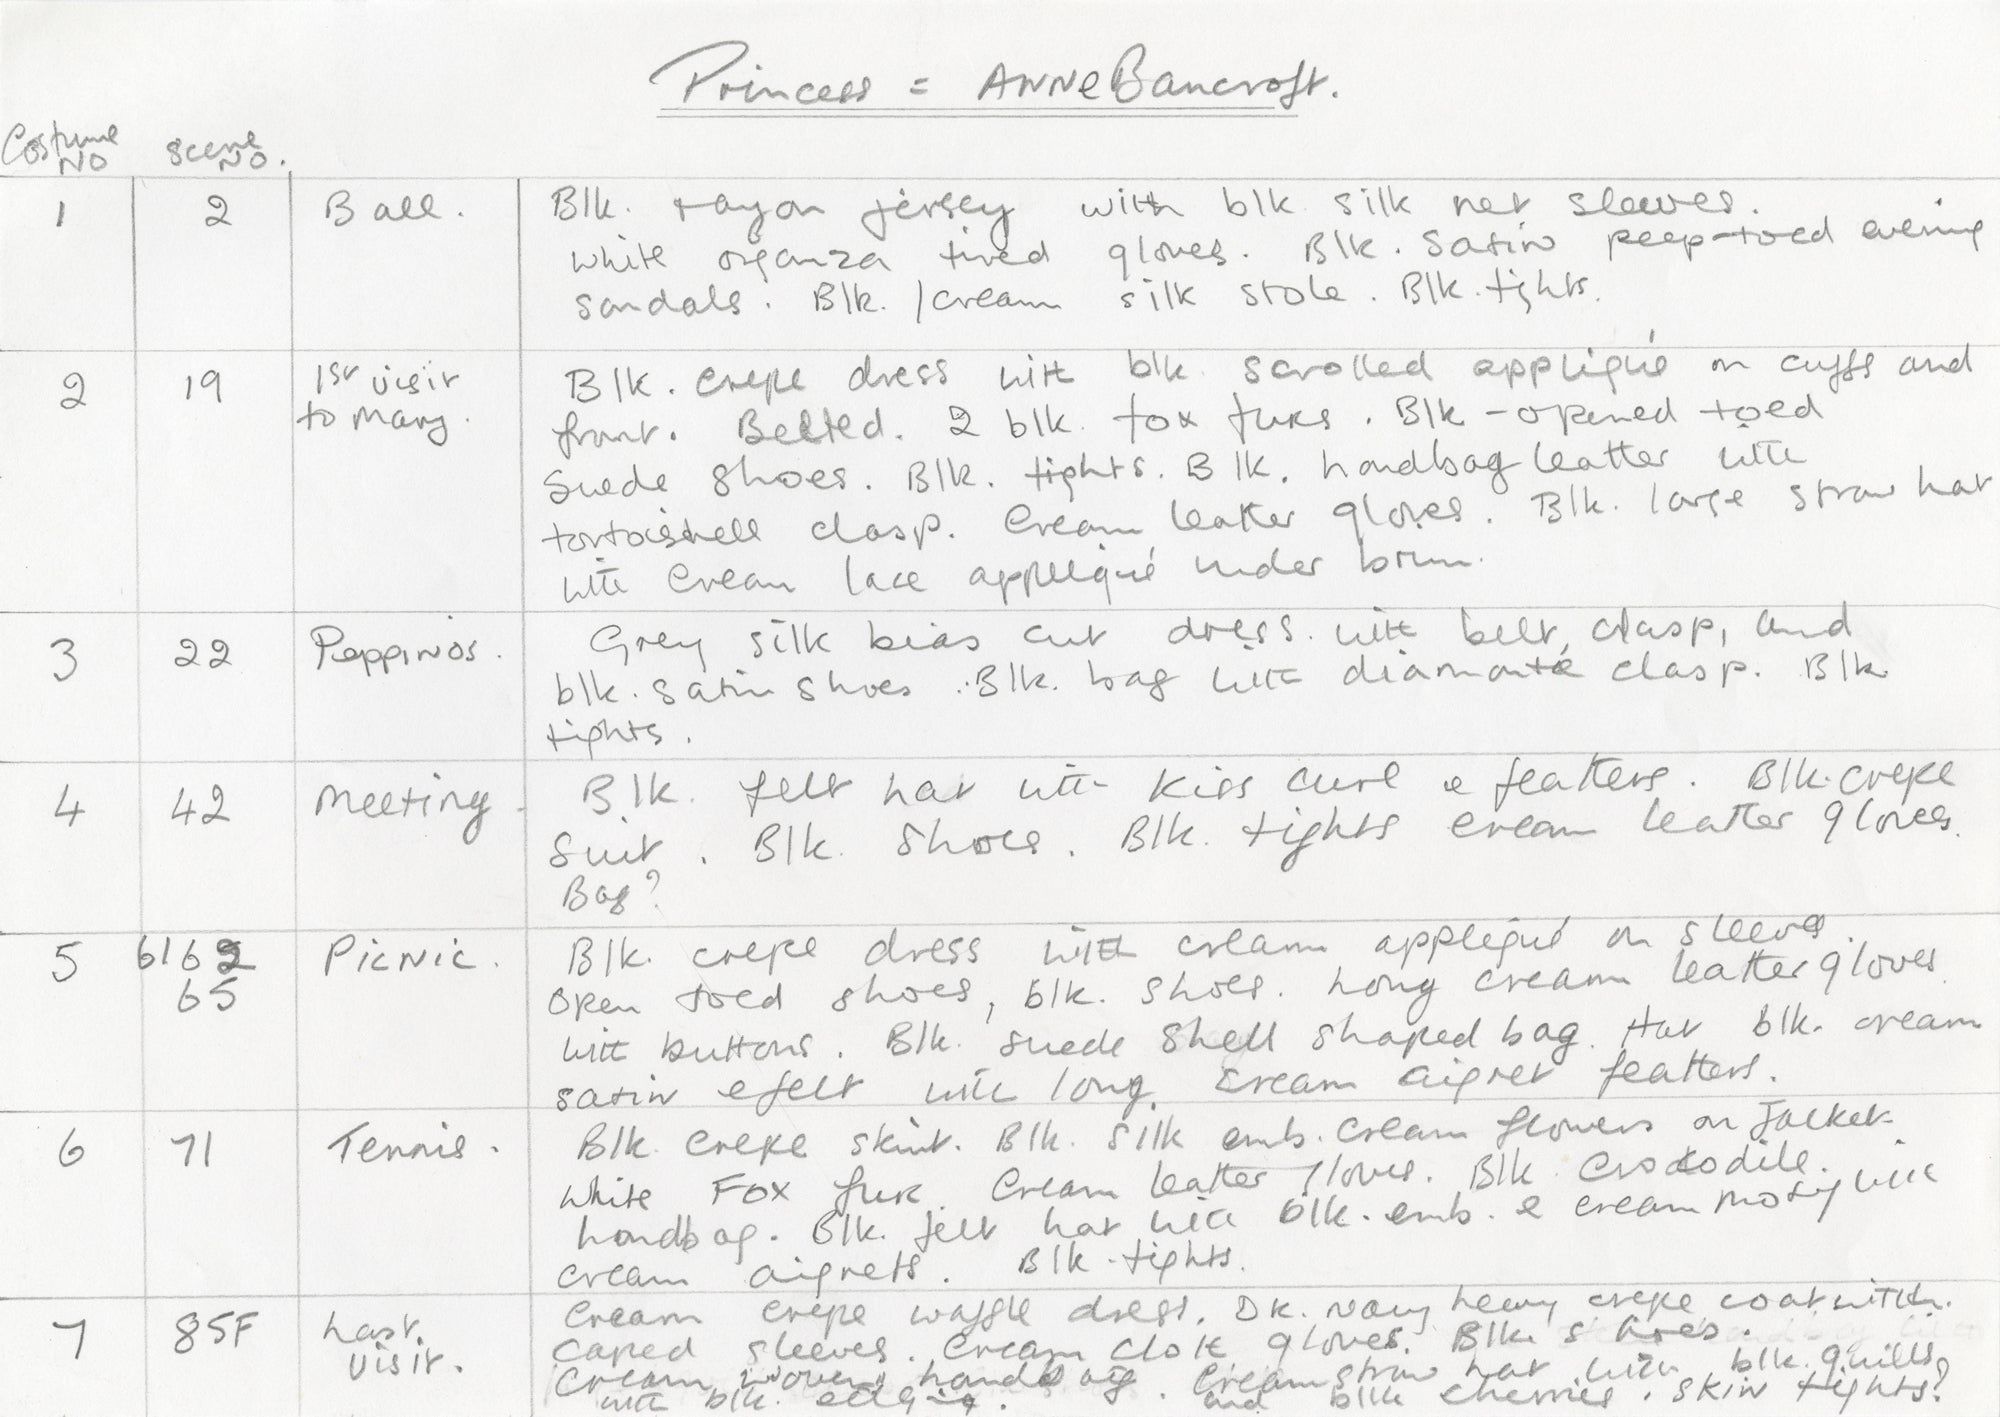 Princess = ANNE Bancroft.
Costume NO
Scene NO.
1 2 Ball. Blk. rayon jersey with blk silk net sleeves.
white organza tired gloves. Blk. satin peep-toed evening
sandals. Blk. / cream silk stole. Blk. tights.
2 19 1st visit to Mary. Blk. crepe dress with blk scrolled appliqué on cuffs and
front. Belted. 2 blk. fox furs. Blk - opened toed
suede shoes. Blk. tights. Blk. handbag leather with
tortoishell clasp. Cream leather gloves. Blk. large straw hat
with cream lace appliqué under brim.
3 22 Peppinos. Grey silk bias cut dress. with belt, clasp, and
blk. satin shoes. Blk. bag with diamanté clasp. Blk
tights.
4 42 Meeting. Blk. felt hat with kiss curl & feathers. Blk. crepe
suit. Blk. shoes. Blk. tights cream leather gloves.
Bag?
5 61 62 65 Picnic. Blk. crepe dress with cream appliqué on sleeves.
Open toed shoes, blk. shoes. Long cream leather gloves
with buttons. Blk. suede shell shaped bag. Hat blk. cream
satin & felt with long cream aigret feathers.
6 71 Tennis. Blk crepe skirt. Blk. silk emb. cream flowers on jacket.
White Fox fur. Cream leather gloves. Blk crocodile.
handbag. Blk. felt hat with blk. emb. & cream with
cream aigrets. Blk. tights.
7 85F Last visit. Cream crepe waffle dress. Dk. Navy heavy crepe coat with.
caped sleeves. Cream cloth gloves. Blk shoes.
Cream woven handbag. Cream straw hat with blk. quills
with blk. edging. and blk cherries. Skin tights?